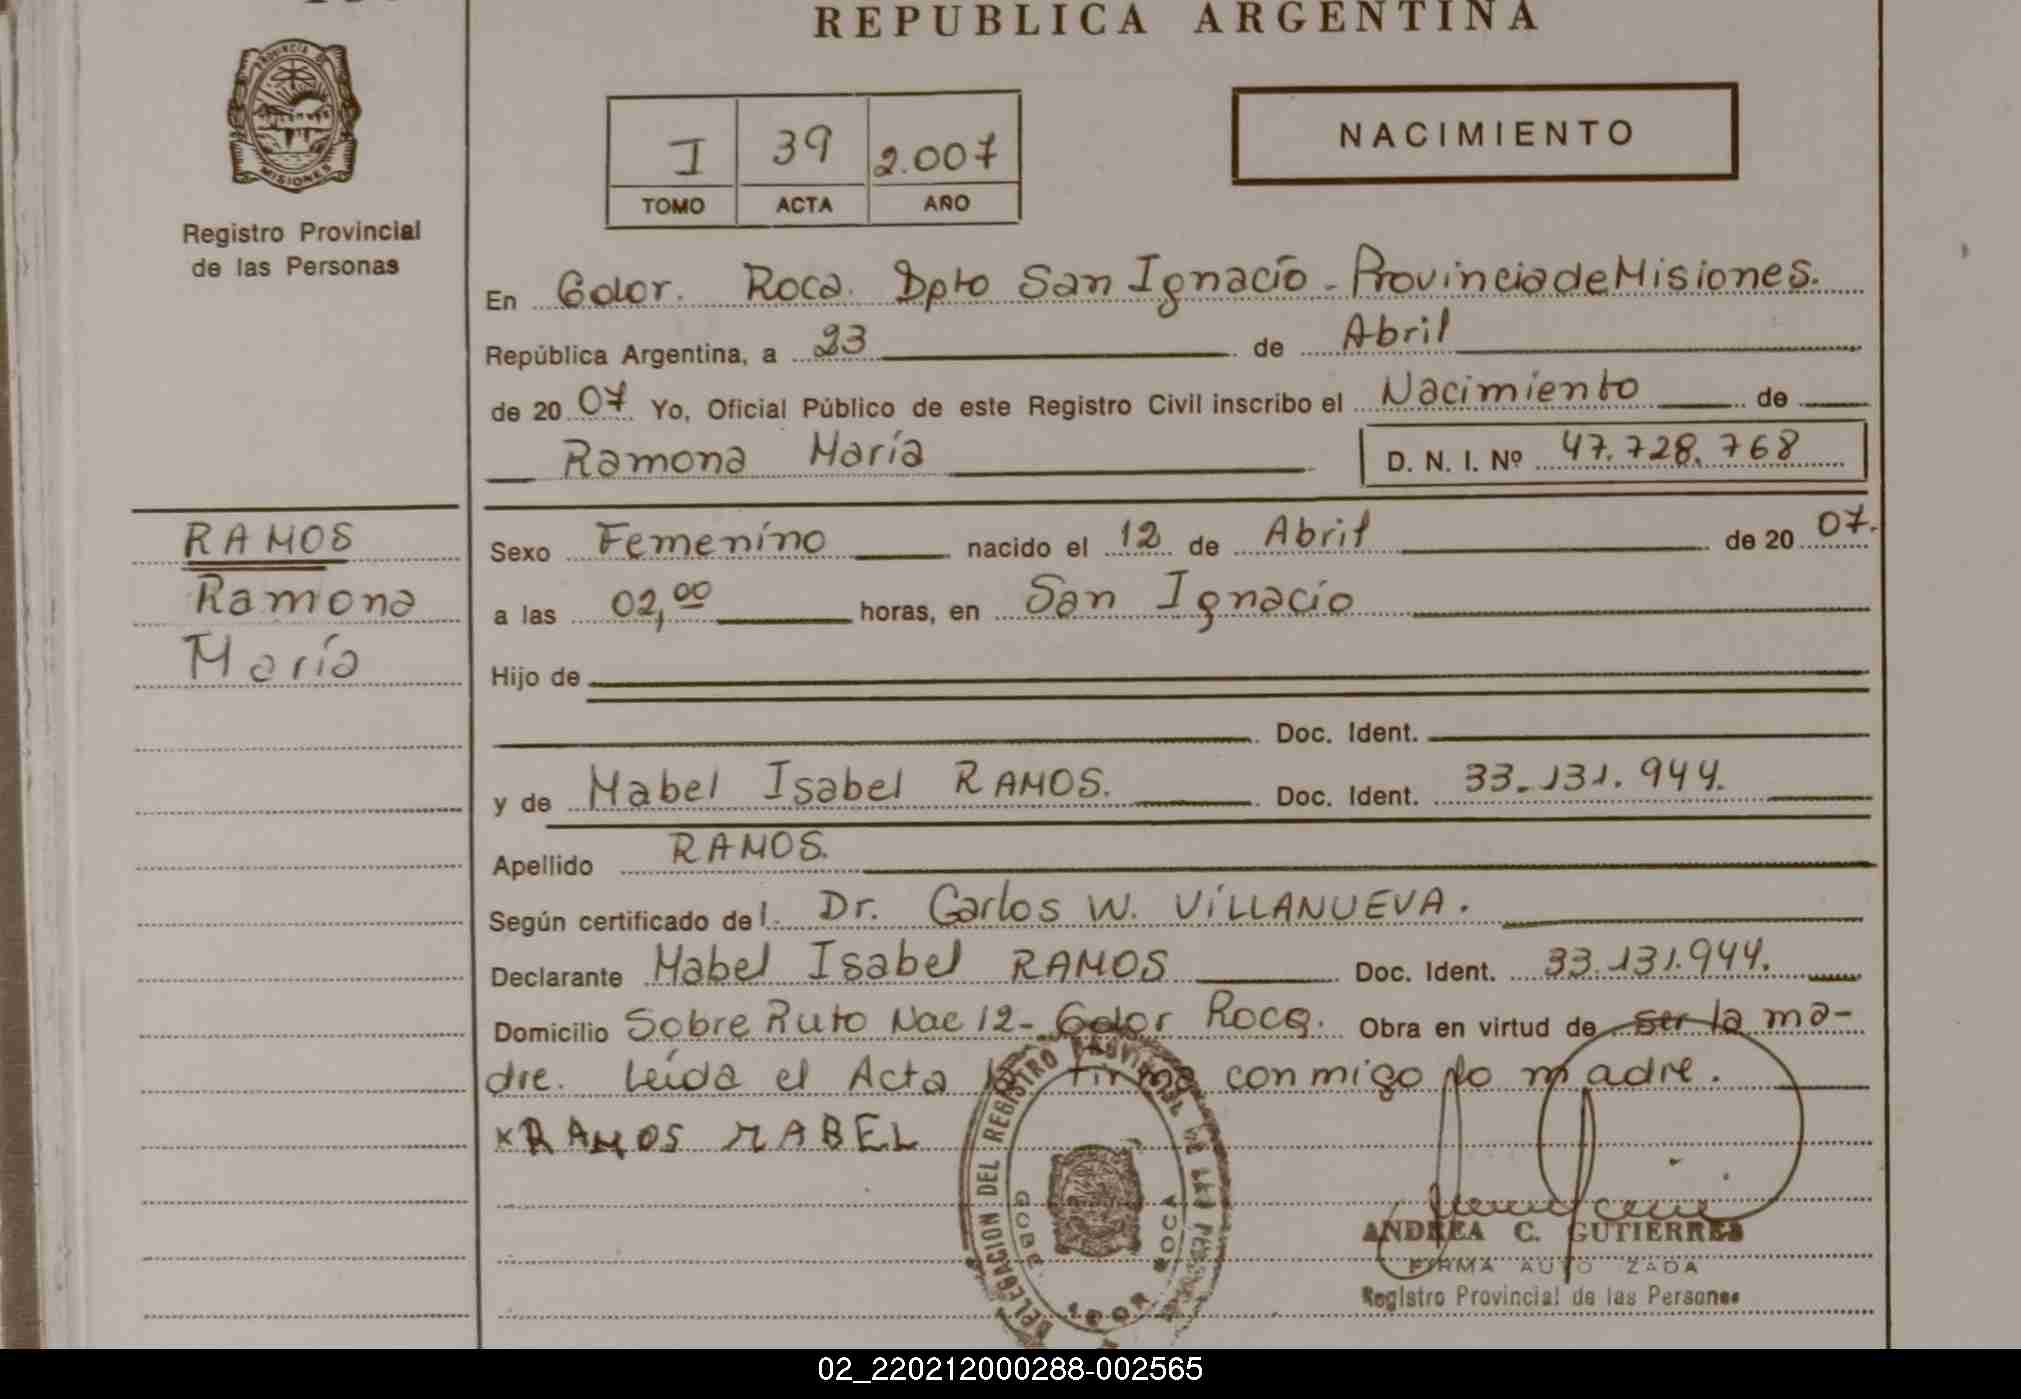 REPUBLICA ARGENTINA
PROVINCIA DE
MISIONES
Registro Provincial
de las Personas
I 39 2.007
TOMO ACTA AÑO
NACIMIENTO
En Gdor. Roca. Dpto San Ignacio - Provincia de Misiones.
República Argentina, a 23 de Abril
de 20 07 Yo, Oficial Público de este Registro Civil inscribo el Nacimiento de
Ramona María D. N. I. Nº 47.728.768
RAMOS
Ramona
María
Sexo Femenino nacido el 12 de Abril de 20 07.
a las 02,00 horas, en San Ignacio
Hijo de
Doc. Ident.
y de Mabel Isabel RAMOS. Doc. Ident. 33.131.944.
Apellido RAMOS.
Según certificado del. Dr. Carlos W. VILLANUEVA.
Declarante Mabel Isabel RAMOS Doc. Ident. 33.131.944.
Domicilio Sobre Ruta Nac 12- Gdor Roca. Obra en virtud de ser la ma-
dre. Leída el Acta la firma conmigo la madre.
X RAMOS MABEL
DELEGACION DEL REGISTRO PROVINCIAL DE LAS PERSONAS
ROCA
ANDREA C. GUTIERRES
FIRMA AUTO ZADA
Registro Provincial de las Personas
02_220212000288-002565